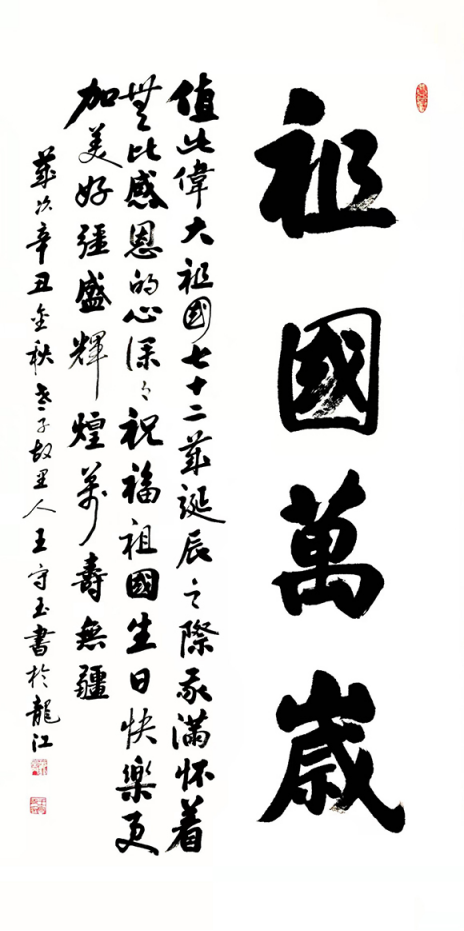 祖國萬歲
值此偉大祖國七十二華誕辰之際我滿怀着
無比感恩的心深々祝福祖國生日快樂更
加美好强盛輝煌萬壽無疆
歲次辛丑金秋老子故里人王守玉書於龍江